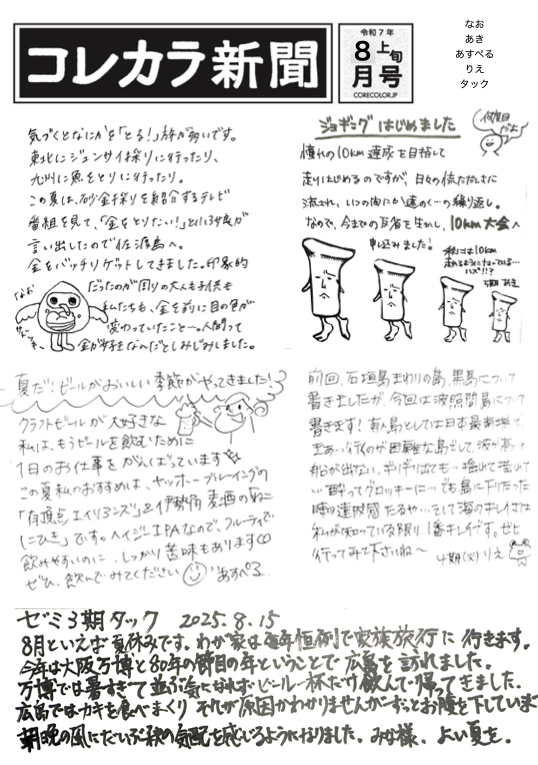 コレカラ新聞
令和7年
8上旬
月号
CORECOLOR.JP
なお
あき
あすぺる
りえ
タック
気づくとなにかを「とる!」旅が多いです。
東北にジュンサイ採りに行ったり、
九州に魚をとりに行ったり。
この夏は、砂金採りを紹介するテレビ
番組を見て、「金をとりたい!」といい3歳が
言い出したので佐渡島へ。
金をバッチリゲットしてきました。印象的
だったのが周りの大人も子供も
私たちも、金を前に目の色が
変わっていたこと〜。人間って
金が好きなんだとしみじみしました。
なお
ジョギングはじめました
何度目だよ
憧れの10km達成を目指して
走りはじめるのですが、日々の慌ただしさに
流され、いつの間にか遠のく…の繰り返し。
なので、今までの反省を生かし、10km大会へ
申し込みました!
秋には10km
走れるようになっている…
ハズ!!?
5期 あき
夏だ!ビールがおいしい季節がやってきました!
クラフトビールが大好きな
私は、もうビールを飲むために
1日のお仕事をがんばっています
この夏私のおすすめは、ヤッホーブルーイングの
「有頂天エイリアンズ」&伊勢角麦酒の「ねこ
にひき」です。ヘイジーIPAなので、フルーティで
飲みやすいのに、しっかり苦味もあります
ぜひ、飲んでみてください あすぺる
前回、石垣島まわりの島、黒島について
書きましたが、今回は波照間島について
書きます!有人島としては日本最南端で、
まあ…行くのが困難な島でして、波が高いと
船が出ない、ギリギリ出ても…揺れて揺れて
…酔ってグロッキーに…でも、島に下りたった
時の達成感たるや…そして海のキレイさは
私が知っている限り、1番キレイです。ぜひ
行ってみて下さいね〜
4期(火)りえ
ゼミ3期タック 2025.8.15
8月といえば夏休みです。わが家は毎年恒例で家族旅行に行きます。
今年は大阪万博と80年の節目の年ということで広島を訪れました。
万博では暑すぎて並ぶ気になれずビール一杯だけ飲んで帰ってきました。
広島ではカキを食べまくり それが原因かわかりませんがずっとお腹を下しています
朝晩の風にだいぶ秋の気配を感じるようになりました。みな様、よい夏を。